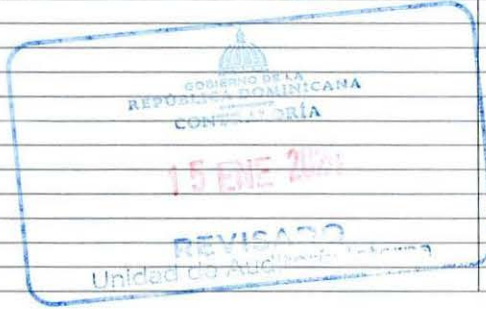 GOBIERNO DE LA
REPÚBLICA DOMINICANA
CONTRALORÍA
15 ENE
REVISADO
Unidad de Auditoría Interna